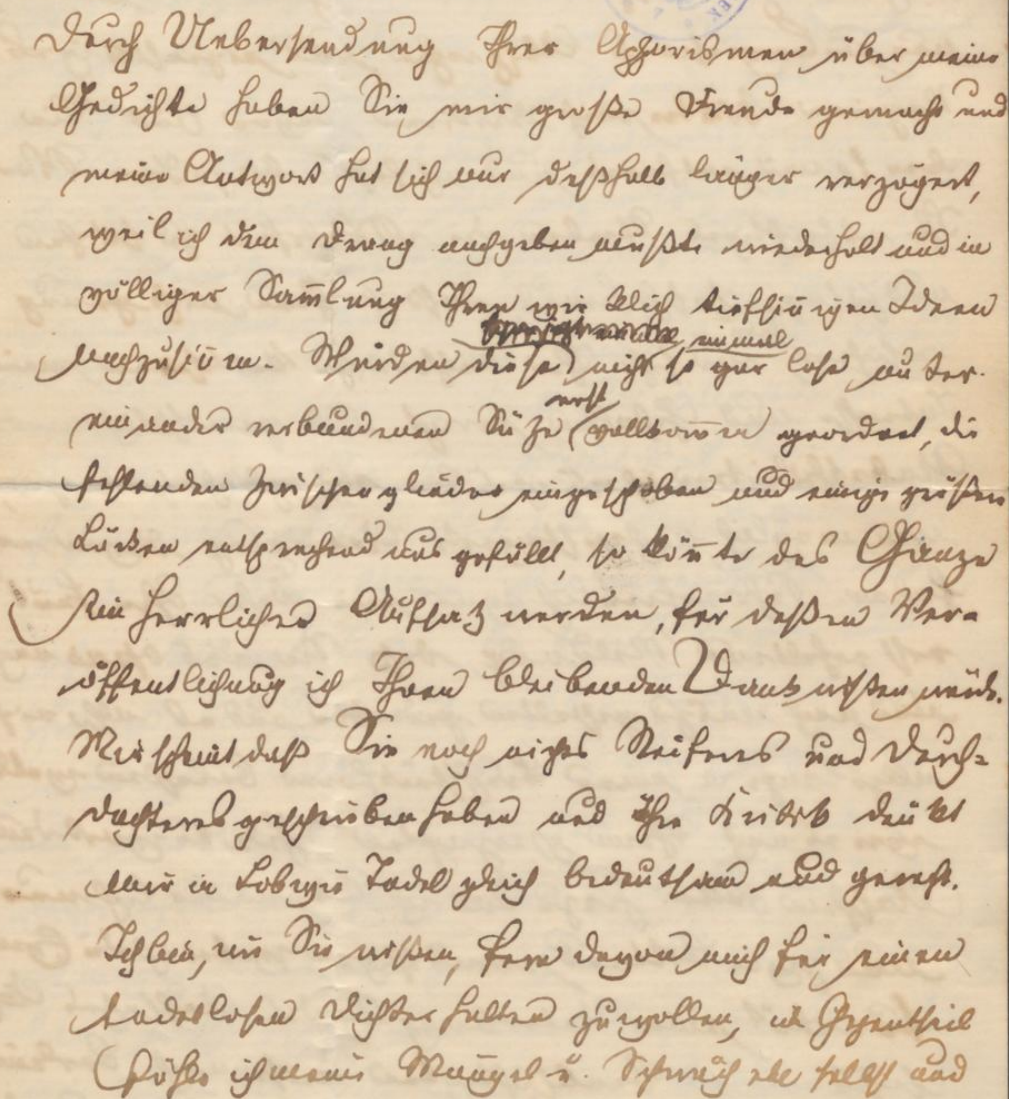 Durch Uebersendung Ihrer Aphorismen über meine
Gedichte haben Sie mir große Freude gemacht und
meine Antwort hat sich nur deßhalb länger verzögert,
weil ich dem Drang nachgeben mußte wiederholt und in
völliger Sam̄lung Ihren wirklich tiefsin̄igen Ideen
einmal
nachzusin̄en. Würden diese nicht so gar lose unter-
erst
einander verbundenen Sätze vollkom̄en geordnet, die
fehlenden Zwischenglieder eingeschoben und einige größere
Lücken entsprechend ausgefüllt, so kön̄te das Ganze
ein herrlicher Aufsatz werden, für deßen Ver-
öffentlichung ich Ihnen bleibenden Dank wißen würde.
Mir scheint daß Sie noch nichts Reiferes und Durch-
dachteres geschrieben haben und Ihre Kritik dünkt
mir in Lob wie Tadel gleich bedeutsam und gerecht.
Ich bin, wie Sie wißen, fern davon mich für einen
tadellosen Dichter halten zu wollen, im Gegentheil
fühle ich meine Mängel u. Schwächen selbst und